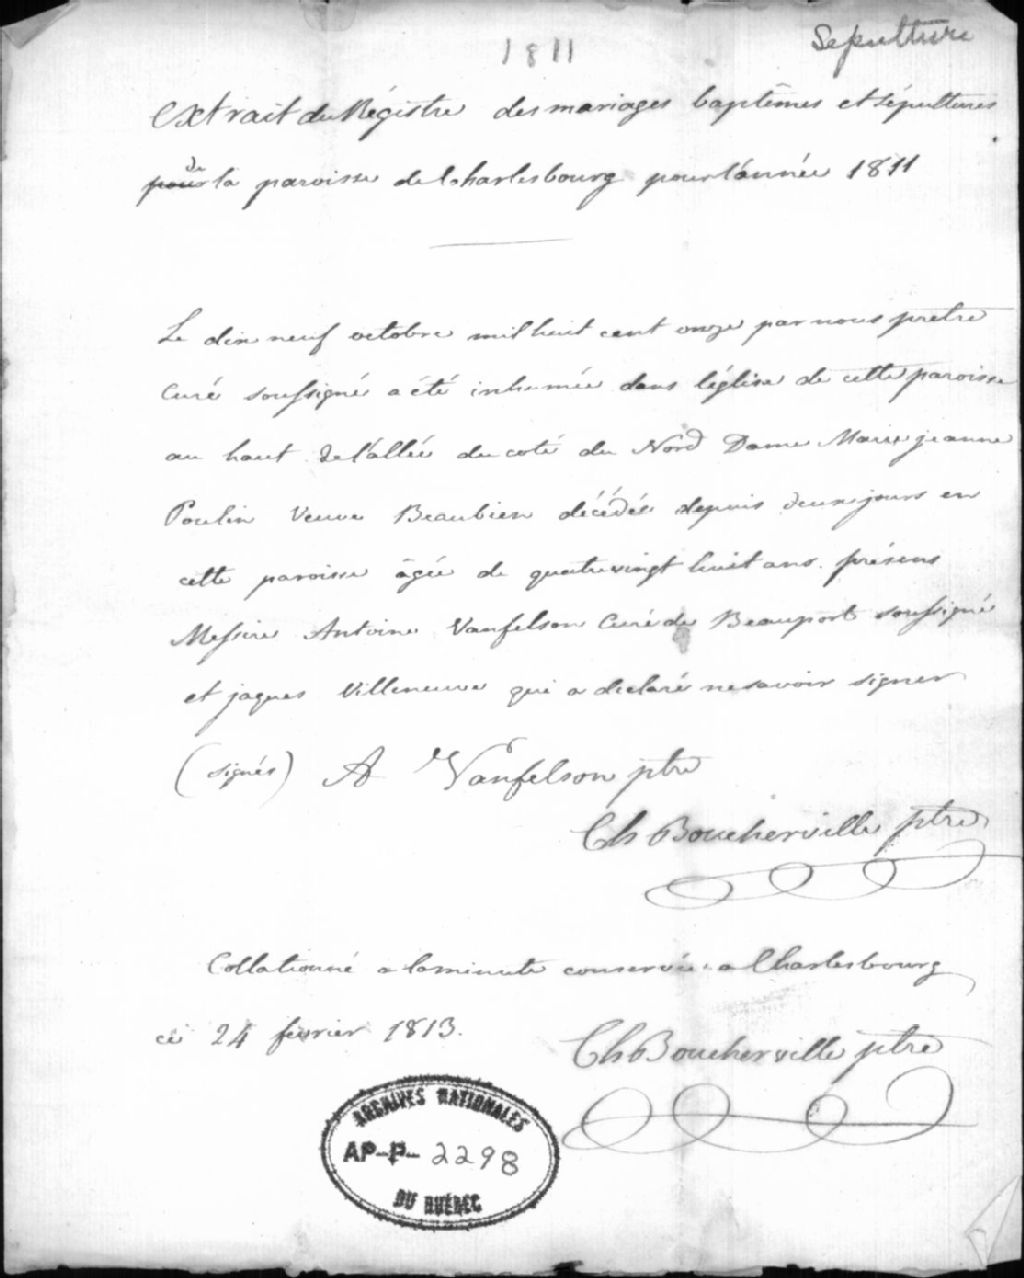 1811
Sepulture
Extrait du Régistre des mariages baptêmes et sépultures
de
pour la paroisse de Charlesbourg pour l'année 1811
Le dix neuf octobre mil huit cent onze par nous prêtre
curé soussigné a été inhumée dans l'église de cette paroisse
au haut de l'allée du coté du Nord Dame Marie jeanne
Poulin Veuve Beaubien décédée depuis deux jours en
cette paroisse âgée de quatre vingt huit ans. présens
Messire Antoine Vanfelson Curé de Beauport soussigné
et jaques Villeneuve qui a declaré ne savoir signer
(signés) A Vanfelson ptre
Ch Boucherville ptre
Collationné a la minute conservée a Charlesbourg
ce 24 fevrier 1813.
Ch Boucherville ptre
ARCHIVES NATIONALES
AP-P-2298
DU QUÉBEC